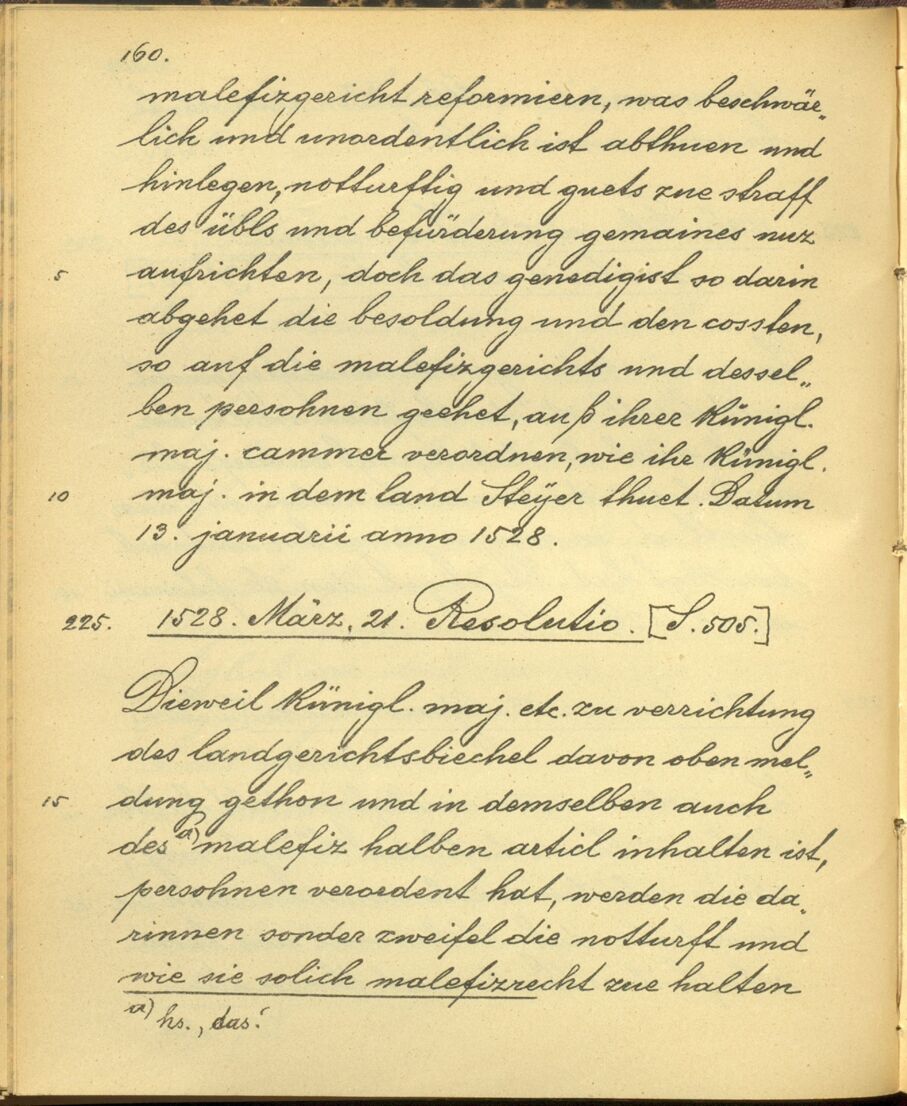 160.
malefizgericht reformiern, was beschwär„
lich und unordentlich ist abthuen und
hinlegen, notturftig und guets zue straff
des übls und befürderung gemaines nuz
5 aufrichten, doch das genedigist so darin
abgehet die besoldung und den cossten,
so auf die malefizgerichts und dessel„
ben persohnen geehet, auß ihrer Künigl.
maj. cammer verordnen, wie ihr Künigl.
10 maj. in dem land Steÿer thuet. Datum
13. januarii anno 1528.
225. 1528. März. 21. Resolutio. [S. 505.]
Dieweil Künigl. maj. etc. zu verrichtung
des landgerichtsbiechel davon oben mel„
15 dung gethon und in demselben auch
des a) malefiz halben articl inhalten ist,
persohnen verordent hat, werden die da„
rinnen sonder zweifel die notturft und
wie sie solich malefizrecht zue halten
a) hs. ‚das‘.